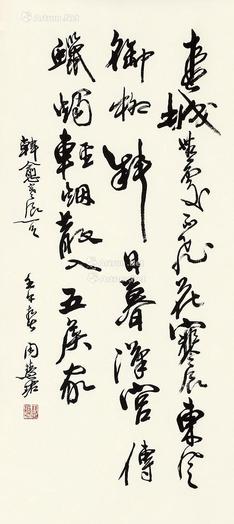 春城無處不飛花寒食東風
御柳斜日暮漢宮傳
蠟燭輕烟散入五侯家
韓愈寒食
壬午 周慧珺